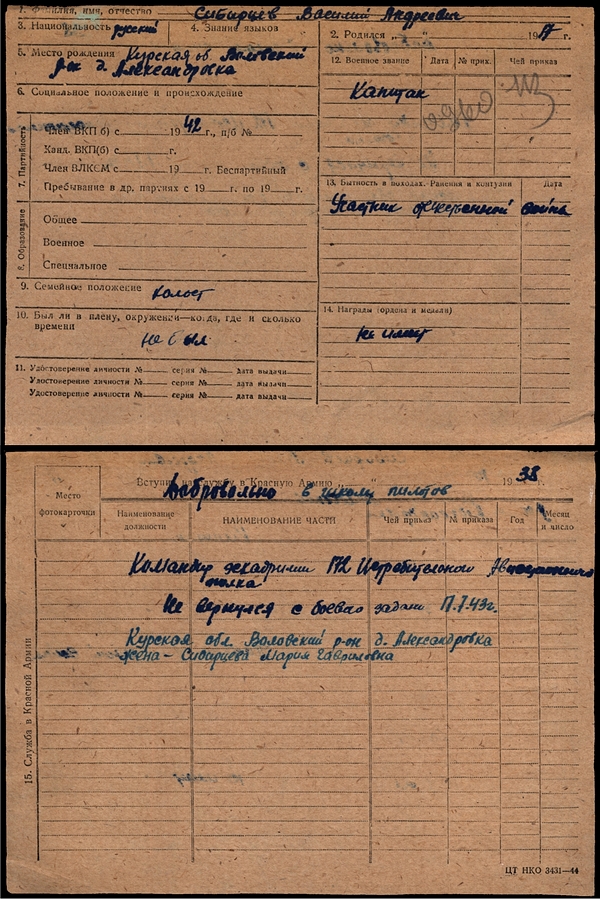 1. Фамилия, имя, отчество Сибирцев Василий Андреевич
3. Национальность русский
4. Знание языков
2. Родился „ “ 1917 г.
5. Место рождения Курская об. Воловский
р-он д. Александровка
12. Военное звание Дата № прик. Чей приказ
Капитан
6. Социальное положение и происхождение
7. Партийность
Член ВКП(б) с 1942 г., п/б №
Канд. ВКП(б) с г.
Член ВЛКСМ с 19 г. Беспартийный
Пребывание в др. партиях с 19 г. по 19 г.
13. Бытность в походах. Ранения и контузии Дата
Участник отечественной война
8. Образование
Общее
Военное
Специальное
9. Семейное положение холост
10. Был ли в плену, окружении—когда, где и сколько
времени
не был
14. Награды (ордена и медали)
Не имеет
11. Удостоверение личности № серия № дата выдачи
Удостоверение личности № серия № дата выдачи
Удостоверение личности № серия № дата выдачи
Место
фотокарточки
Вступил на службу в Красную Армию „ “ 1938 г.
Добровольно в школу пилотов
Наименование
должности
НАИМЕНОВАНИЕ ЧАСТИ
Чей приказ
№ приказа
Год
Месяц
и число
15. Служба в Красной Армии
Командир эскадрилии 172 Истребительного Авиационного
полка
Не вернулся с боевого задан 17.7.43г.
Курская обл. Воловский р-он д. Александровка
жена - Сибирцева Мария Гавриловна
ЦТ НКО 3431—44